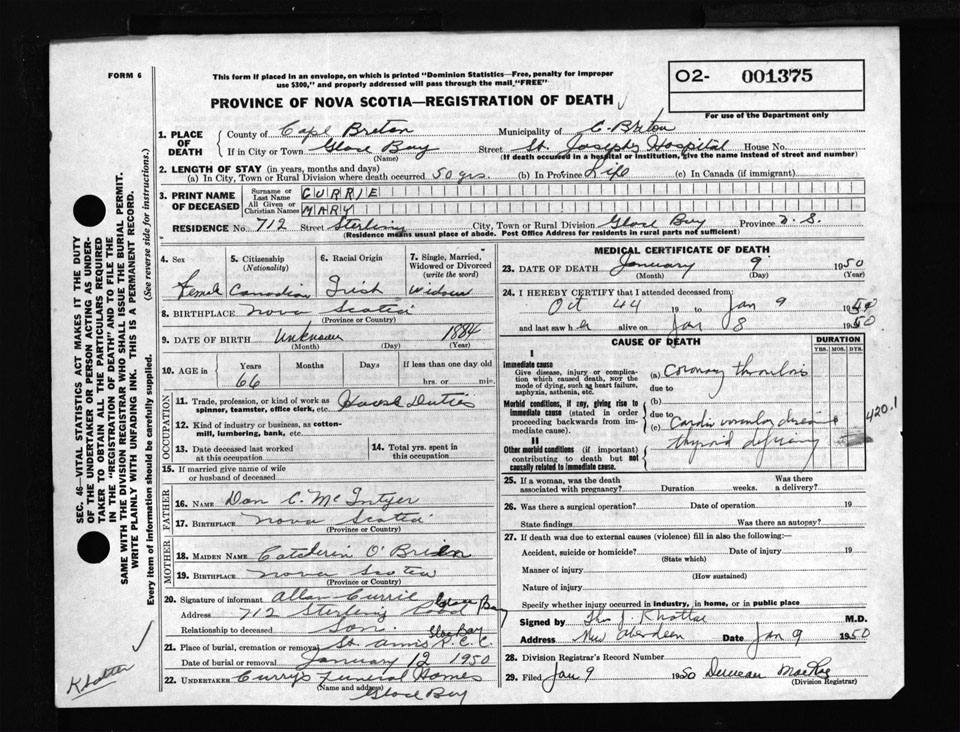 FORM 6
This form if placed in an envelope, on which is printed "Dominion Statistics—Free, penalty for improper
use $300," and properly addressed will pass through the mail "FREE"
O2- 001375
PROVINCE OF NOVA SCOTIA—REGISTRATION OF DEATH
For use of the Department only
1. PLACE OF DEATH
County of Cape Breton Municipality of C. Breton
If in City or Town Glace Bay Street St. Josephs Hospital House No.
(Name) (If death occurred in a hospital or institution, give the name instead of street and number)
2. LENGTH OF STAY (in years, months and days)
a) In City, Town or Rural Division where death occurred 50 yrs. (b) In Province Life (c) In Canada (if immigrant)
3. PRINT NAME OF DECEASED
Surname or Last Name CURRIE
All Given or Christian Names MARY
RESIDENCE No. 712 Street Sterling City, Town or Rural Division Glace Bay Province N. S.
(Residence means usual place of abode. Post Office Address for residents in rural parts not sufficient)
4. Sex
Female
5. Citizenship (Nationality)
Canadian
6. Racial Origin
Irish
7. Single, Married, Widowed or Divorced (write the word)
Widow
8. BIRTHPLACE Nova Scotia
(Province or Country)
9. DATE OF BIRTH Unknown 1884
(Month) (Day) (Year)
10. AGE in Years Months Days If less than one day old
66 hrs. or min.
OCCUPATION
11. Trade, profession, or kind of work as
spinner, teamster, office clerk, etc. House Duties
12. Kind of industry or business, as cotton-
mill, lumbering, bank, etc.
13. Date deceased last worked
at this occupation
14. Total yrs. spent in
this occupation
15. If married give name of wife
or husband of deceased
FATHER
16. NAME Dan C. McIntyer
17. BIRTHPLACE Nova Scotia
(Province or Country)
MOTHER
18. MAIDEN NAME Catcherin O'Brien
19. BIRTHPLACE Nova Scotia
(Province or Country)
20. Signature of informant Allan Currie
Address 712 Sterling Glace Bay
Relationship to deceased Son
21. Place of burial, cremation or removal St. Anns R.C.C. Glace Bay
Date of burial or removal January 12 1950
22. UNDERTAKER Currys Funeral Homes
(Name and address) Glace Bay
MEDICAL CERTIFICATE OF DEATH
23. DATE OF DEATH January 9 1950
(Month) (Day) (Year)
24. I HEREBY CERTIFY that I attended deceased from:
Oct 44 19 to Jan 9 19
and last saw her alive on Jan 8 1950
CAUSE OF DEATH
DURATION
YRS. MOS. DYS.
I
Immediate cause
Give disease, injury or complica-
tion which caused death, NOT the
mode of dying, such as heart failure,
asphyxia, asthenia, etc.
(a) Coronary thrombosis
due to
Morbid conditions, if any, giving rise to
immediate cause (stated in order
proceeding backwards from im-
mediate cause).
(b)
due to
(c) Cardio vascular disease
420.1
II
Other morbid conditions (if important)
contributing to death but not
causally related to immediate cause.
thyroid deficiency
25. If a woman, was the death
associated with pregnancy? Duration weeks. Was there
a delivery?
26. Was there a surgical operation? Date of operation 19
State findings Was there an autopsy?
27. If death was due to external causes (violence) fill in also the following:
Accident, suicide or homicide? Date of injury 19
(State which)
Manner of injury
(How sustained)
Nature of injury
Specify whether injury occurred in industry, in home, or in public place
Signed by J. Khattar M.D.
Address New Aberdeen Date Jan 9 1950
28. Division Registrar's Record Number
29. Filed Jan 9 1950 Duncan MacRae
(Division Registrar)
SEC. 46—VITAL STATISTICS ACT MAKES IT THE DUTY
OF THE UNDERTAKER OR PERSON ACTING AS UNDER-
TAKER TO OBTAIN ALL THE PARTICULARS REQUIRED
IN THE "REGISTRATION OF DEATH" AND TO FILE THE
SAME WITH THE DIVISION REGISTRAR WHO SHALL ISSUE THE BURIAL PERMIT.
WRITE PLAINLY WITH UNFADING INK. THIS IS A PERMANENT RECORD.
Every item of information should be carefully supplied. (See reverse side for instructions.)
Khattar